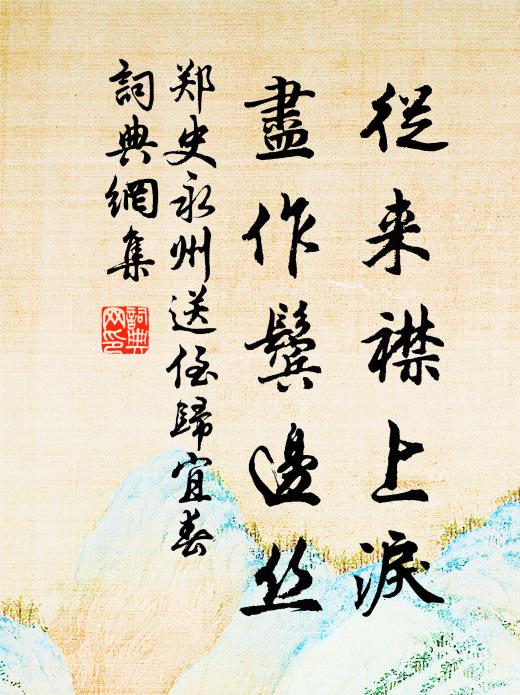 從来襟上淚
盡作鬢邊丝
郑史永州送侄歸宜春
詞典網集
詞典
网印